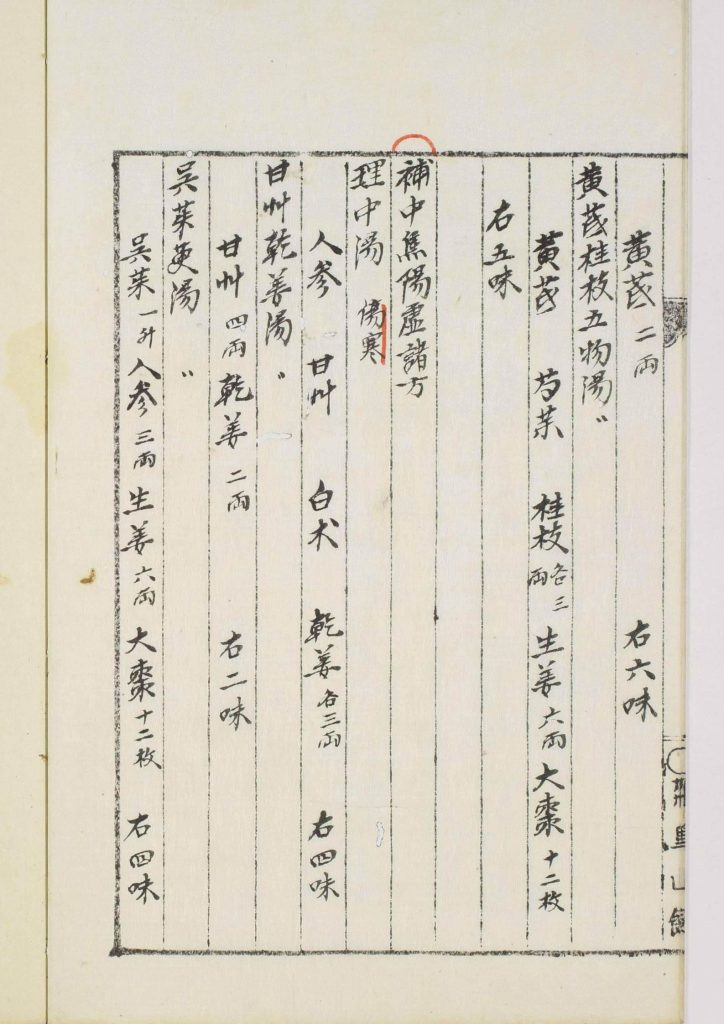 黄芪 二両 右六味
黄芪桂枝五物湯〃
黄芪 芍薬 桂枝各三両 生姜六両 大棗十二枚
右五味
補中焦陽虚諸方
理中湯 傷寒
人参 甘艸 白朮 乾姜各三両 右四味
甘艸乾姜湯〃
甘艸四両 乾姜二両 右二味
呉茱萸湯〃
呉茱一升 人参三両 生姜六両 大棗十二枚 右四味